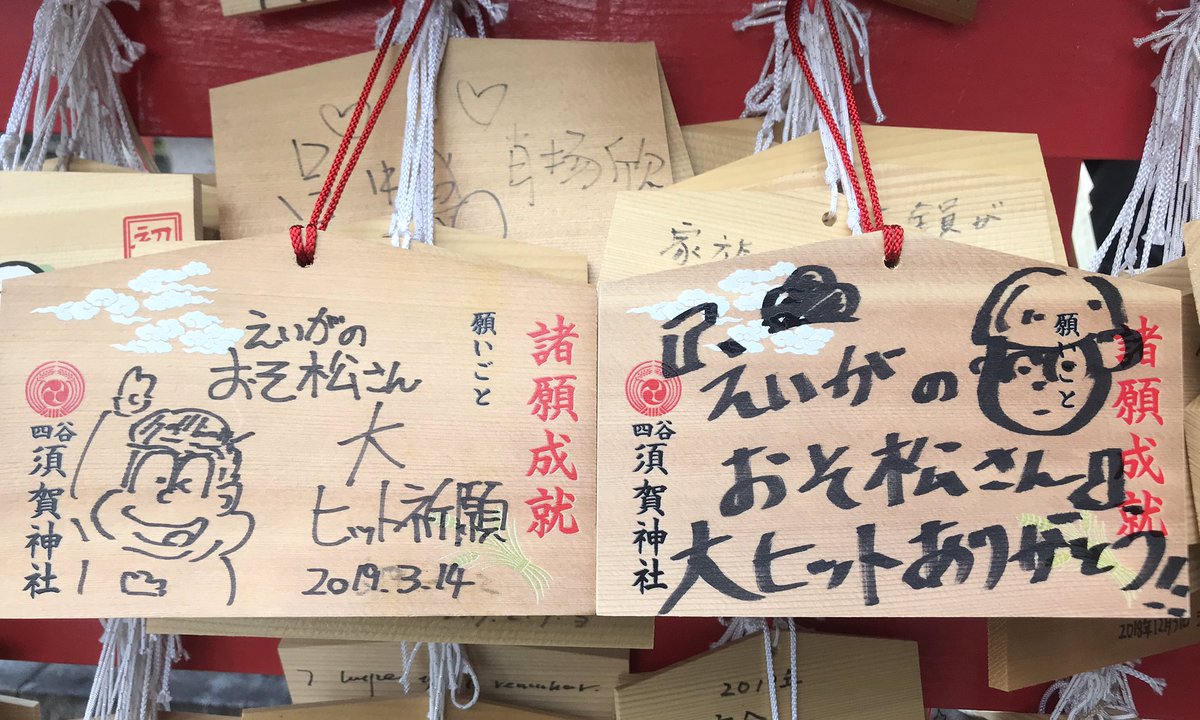 諸願成就
願いごと
えいがの
おそ松さん
大
ヒット祈願
2019.3.14
四谷
須賀神社
諸願成就
願いごと
『えいがの
おそ松さん』
大ヒットありがとう!!
四谷
須賀神社
家族
全員が
初
2018年12月31日